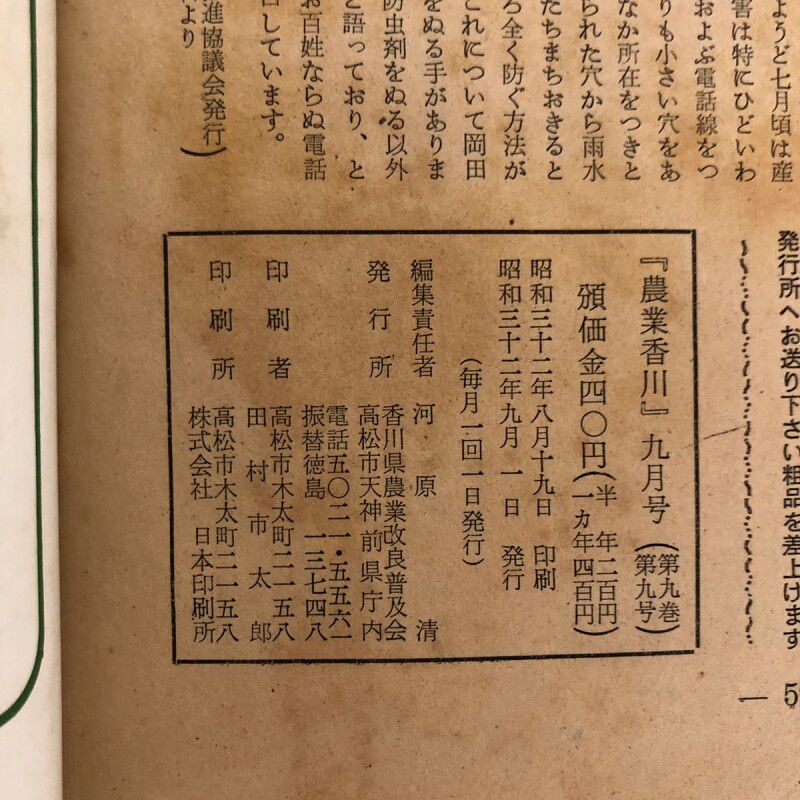 ようど七月頃は産
害は特にひどいわ
およぶ電話線をつ
りも小さい穴をあ
なか所在をつきと
られた穴から雨水
たちまちおきると
ろ全く防ぐ方法が
これについて岡田
をぬる手がありま
防虫剤をぬる以外
と語っており、と
お百姓ならぬ電話
しています。
進協議会発行)
より
発行所へお送り下さい粗品を差上げます
『農業香川』九月号(第九巻
第九号)
頒価金四〇円(半年二百円
一カ年四百円)
昭和三十二年八月十九日 印刷
昭和三十二年九月一日 発行
(毎月一回一日発行)
編集責任者 河原 清
発行所 香川県農業改良普及会
高松市天神前県庁内
電話五〇二一・五五六一
振替徳島 一三七四八
印刷者 高松市木太町二一五八
田村市太郎
印刷所 高松市木太町二一五八
株式会社 日本印刷所
— 5